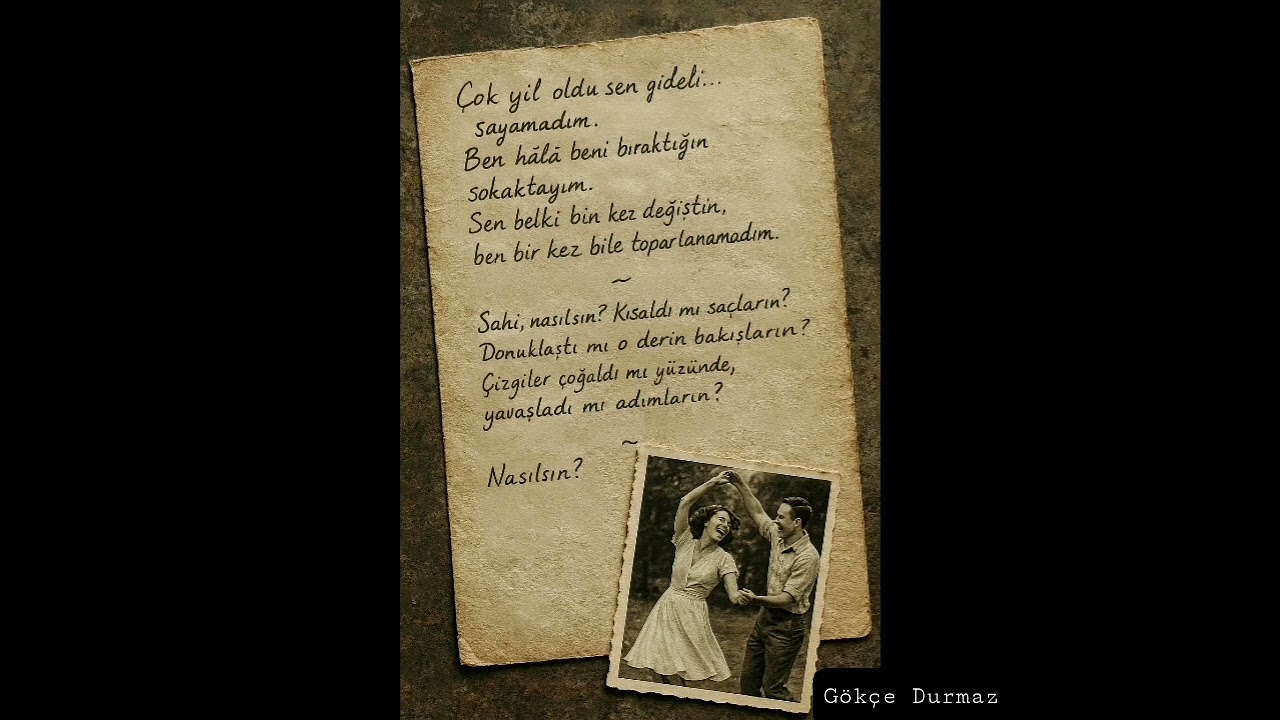 Çok yil oldu sen gideli...
sayamadım.
Ben hālā beni bıraktığın
sokaktayım.
Sen belki bin kez değiştin,
ben bir kez bile toparlanamadım.
~
Sahi, nasılsın? Kısaldı mı saçların?
Donuklaştı mı o derin bakışların?
Çizgiler çoğaldı mı yüzünde,
yavaşladı mı adımların?
~
Nasılsın?
Gökçe Durmaz